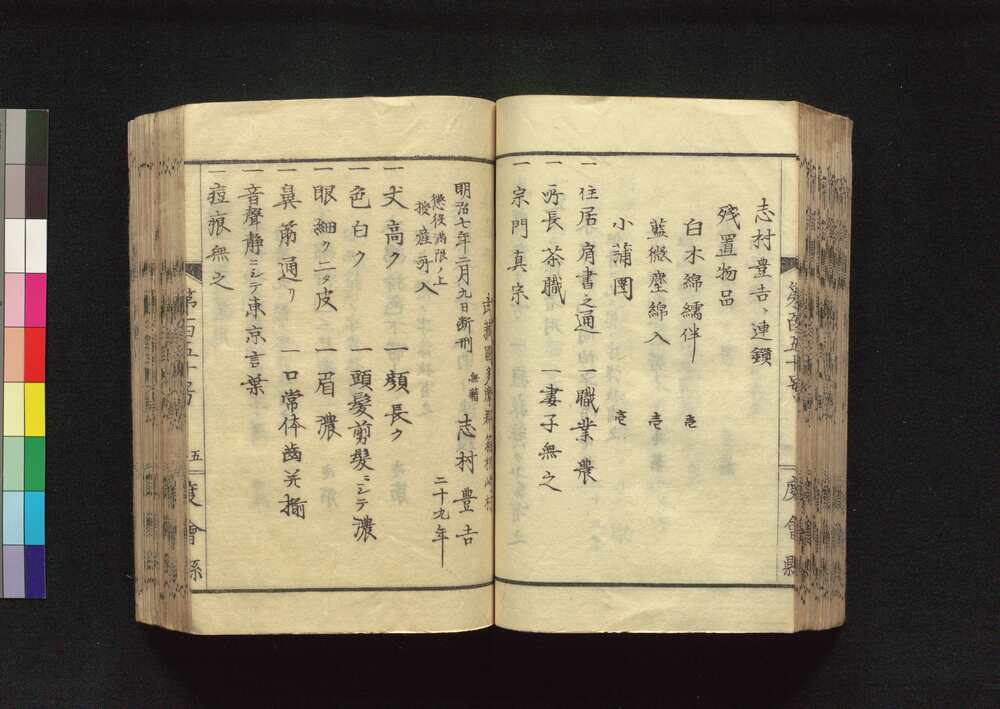 志村豊吉、連鎖
残置物品
白木綿繻伴 壱
藍微塵綿入 壱
小蒲団 壱
一 住居肩書之通 一 職業農
一 所長茶職 一 妻子無之
一 宗門真宗
無籍 志村豊吉
二十九年
明治七年二月九日断刑
懲役満限ノ上
授産所入
一 丈高ク 一 顔長ク
一 色白ク 一 頭髪剪髪ニシテ濃
一 眼細ク二タ皮 一 眉濃
一 鼻筋通リ 一 口常体歯並揃
一 音聲静ニシテ東京言葉
一 痘痕無之
第百五十号
五
度會縣